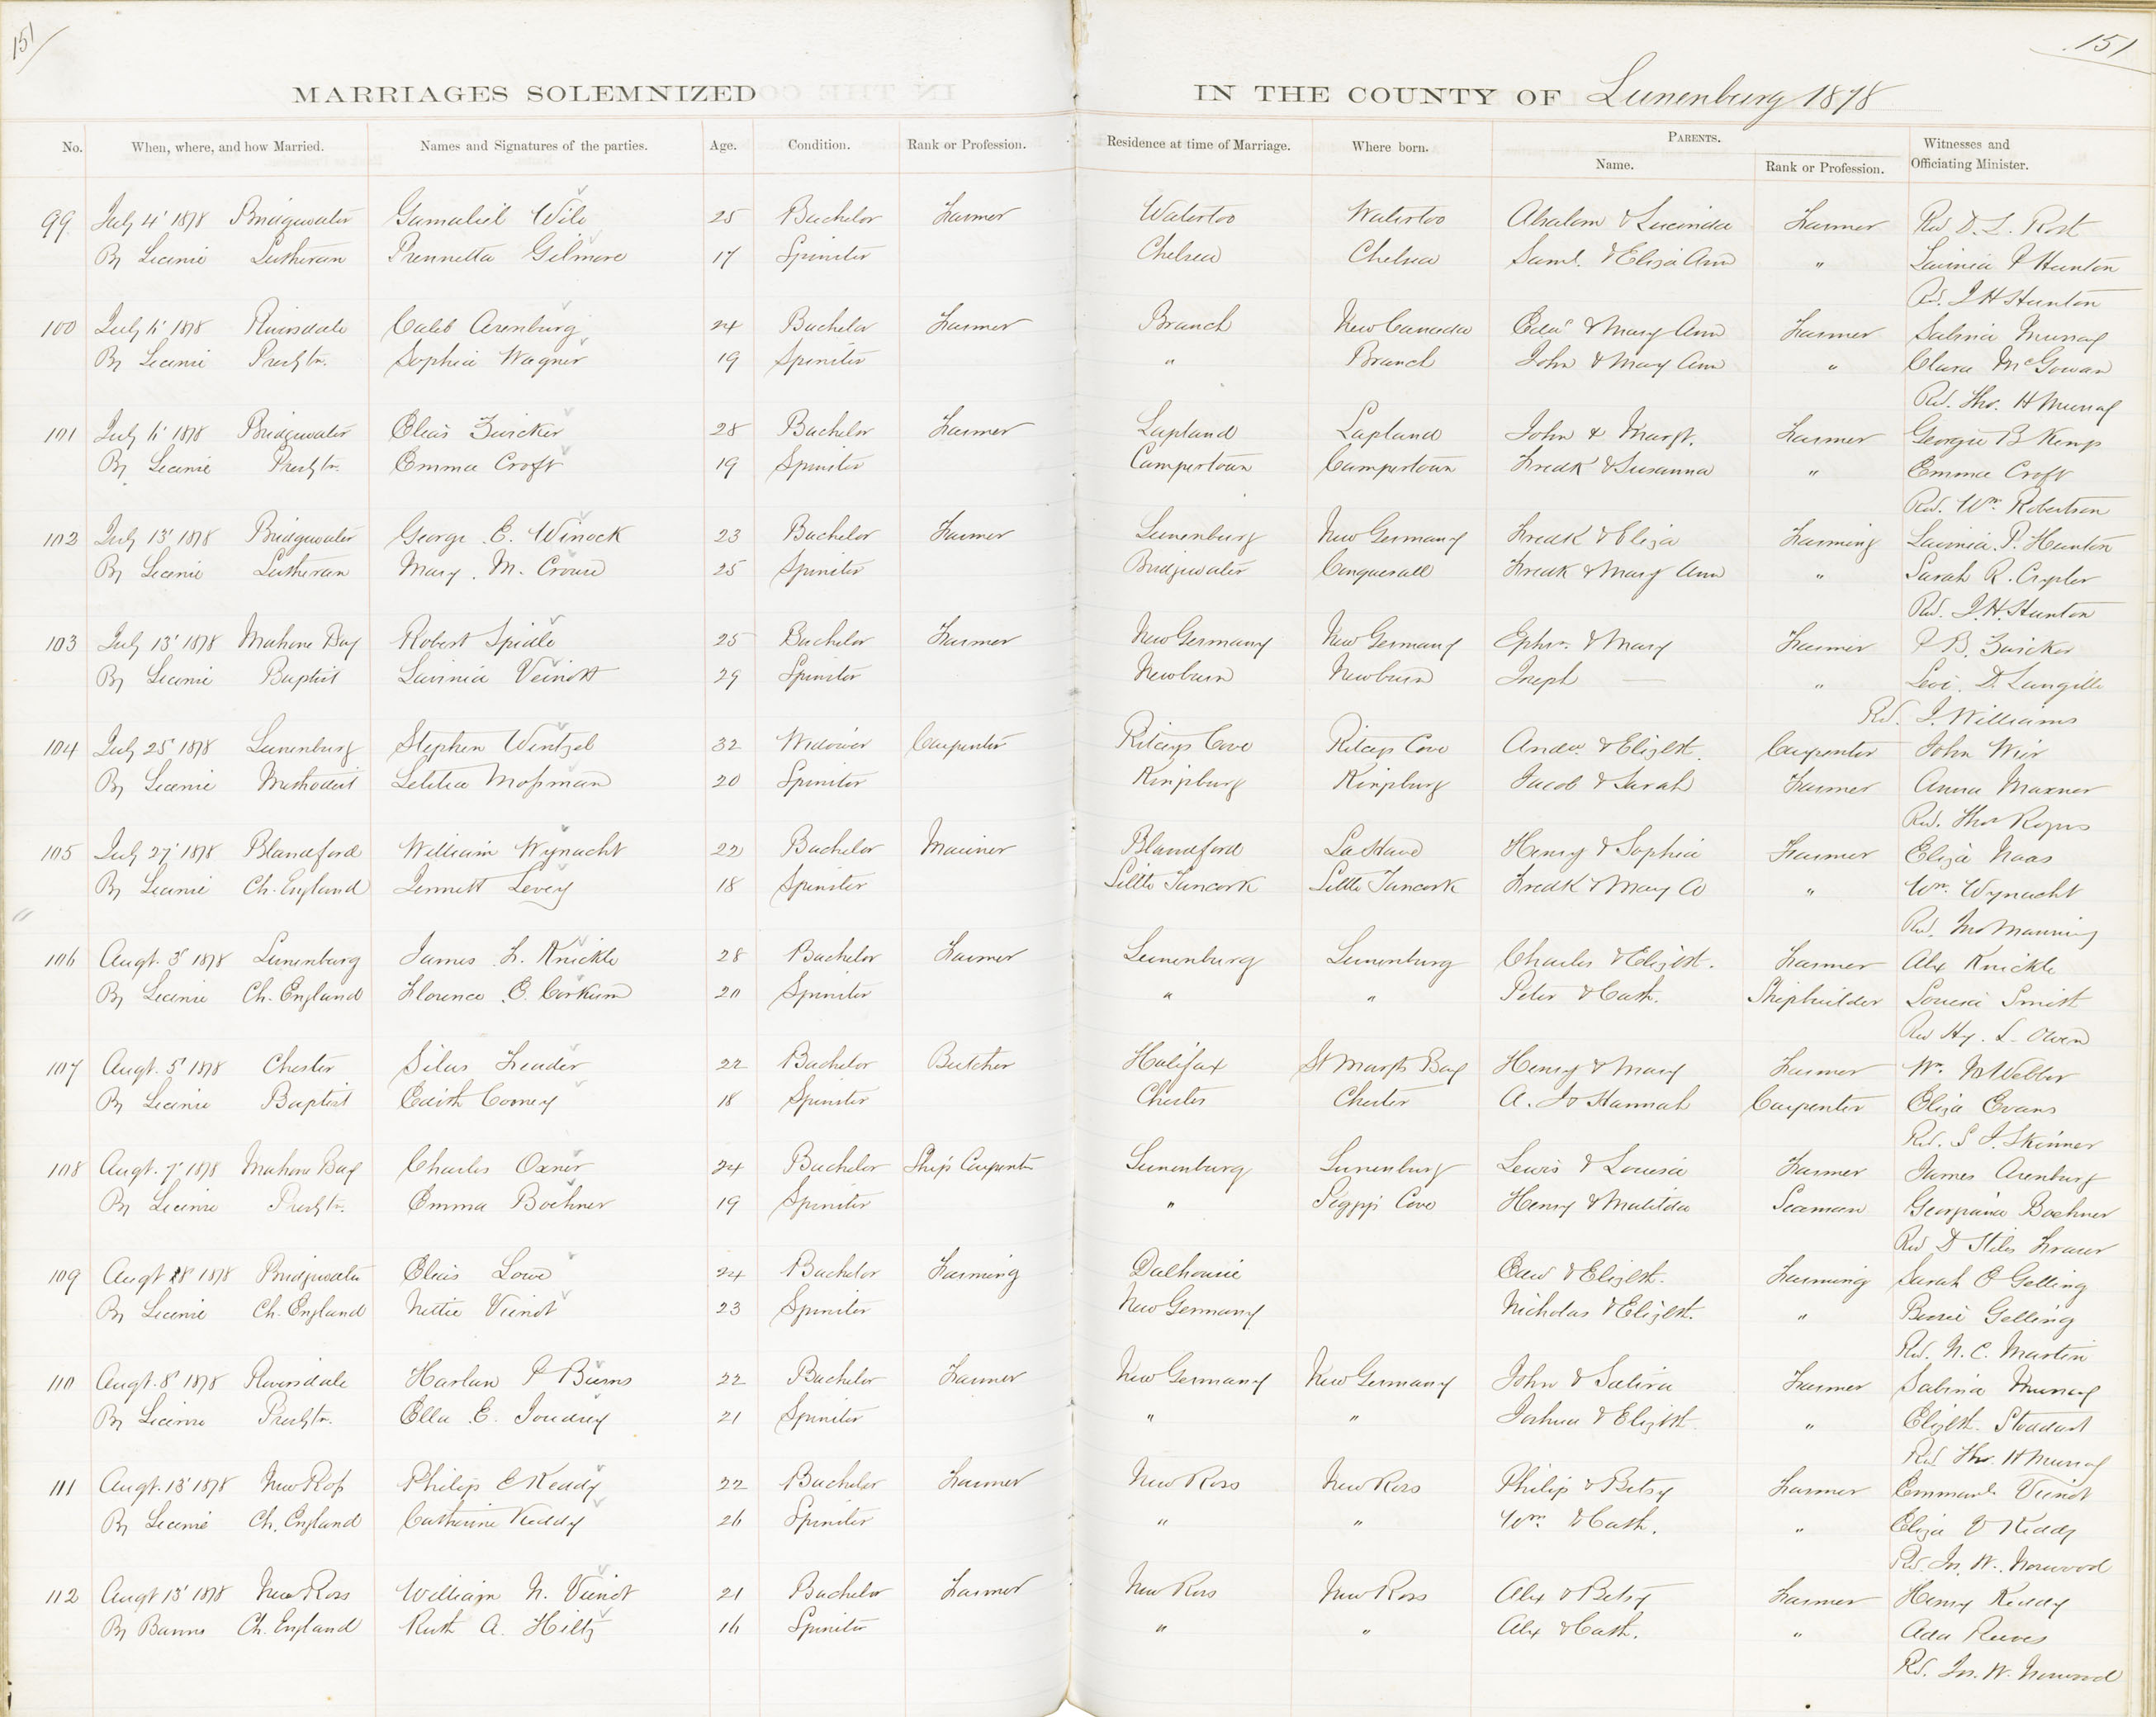 151
151
MARRIAGES SOLEMNIZED IN THE COUNTY OF Lunenburg 1878
No. When, where, and how Married. Names and Signatures of the parties. Age. Condition. Rank or Profession. Residence at time of Marriage. Where born. PARENTS. Name. Rank or Profession. Witnesses and Officiating Minister.
99 July 4' 1878 Bridgewater Gamaliel Wile 25 Bachelor Farmer Waterloo Waterloo Absalom & Lucinda Farmer Rev D. L. Rost
By Licence Lutheran Prennetta Gilmore 17 Spinster Chelsea Chelsea Saml. & Eliza Ann " Lavinia P Hunton
Rd. J H Hunton
100 July 11' 1878 Riversdale Caleb Arenburg 24 Bachelor Farmer Branch New Canada Edwd & Mary Ann Farmer Sabina Murray
By Licence Presbtn. Sophia Wagner 19 Spinster " Branch John & Mary Ann " Clara McGowan
Rd. Thos. H Murray
101 July 11' 1878 Bridgewater Elias Zwicker 28 Bachelor Farmer Lapland Lapland John & Margt. Farmer Georgie B Kemp
By Licence Presbtn. Emma Croft 19 Spinster Campertown Campertown Fredk & Susanna " Emma Croft
Rd. Wm. Robertson
102 July 13' 1878 Bridgewater George E. Winock 23 Bachelor Farmer Lunenburg New Germany Fredk & Eliza Farming Lavinia P. Hunton
By Licence Lutheran Mary M. Crouse 25 Spinster Bridgewater Conquerall Fredk & Mary Ann " Sarah R.
Rd. J. H. Hunton
103 July 13' 1878 Mahone Bay Robert Spidle 25 Bachelor Farmer New Germany New Germany Ephm. & Mary Farmer P B. Zwicker
By Licence Baptist Lavinia Veinott 29 Spinster Newburn Newburn Joseph — " Levi D. Langille
Rd. J. Williams
104 July 25' 1878 Lunenburg Stephen Wentzel 32 Widower Carpenter Ritceys Cove Ritceys Cove Andw & Elizbt. Carpenter John Weir
By Licence Methodist Letitia Mossman 20 Spinster Kingsburg Kingsburg Jacob & Sarah Farmer Anna Maxner
Rd. Thos Rogers
105 July 27' 1878 Blandford William Wynacht 22 Bachelor Mariner Blandford LaHave Henry & Sophia Farmer Eliza Naas
By Licence Ch. England Jennett Levey 18 Spinster Little Tancook Little Tancook Fredk & Mary A " Wm. Wynacht
Rd. Manning
106 Augt. 3' 1878 Lunenburg James L. Knickle 28 Bachelor Farmer Lunenburg Lunenburg Charles & Elizbt. Farmer Alex Knickle
By Licence Ch. England Florence E. Corkum 20 Spinster " " Peter & Cath. Shipbuilder Louisa Smith
Rd Hy. L. Owen
107 Augt. 5' 1878 Chester Silas Feader 22 Bachelor Butcher Halifax St Margts Bay Henry & Mary Farmer Wm. Webber
By Licence Baptist Edith Cooney 18 Spinster Chester Chester A. J & Hannah Carpenter Eliza Evans
Rd. S J. Skinner
108 Augt. 7' 1878 Mahone Bay Charles Oxner 24 Bachelor Ship Carpentr Lunenburg Lunenburg Lewis & Louisa Farmer James Arenburg
By Licence Presbtn. Emma Boehner 19 Spinster " Peggys Cove Henry & Matilda Seaman Georgiana Boehner
Rd D Stiles Fraser
109 Augt 8' 1878 Bridgewater Elias Lowe 24 Bachelor Farming Dalhousie Edw & Elizbt. Farming Sarah E Gelling
By Licence Ch. England Nettie Vienot 23 Spinster New Germany Nicholas & Elizbt. " Bessie Gelling
Rd. N. C. Martin
110 Augt. 8' 1878 Riversdale Harlan P Burns 22 Bachelor Farmer New Germany New Germany John & Salina Farmer Sabina Murray
By Licence Presbtn. Ella E. Joudrey 21 Spinster " " Joshua & Elizbt " Elizbt. Stoddart
Rd Thos. H Murray
111 Augt. 13' 1878 New Ross Philip E Keddy 22 Bachelor Farmer New Ross New Ross Philip & Betsy Farmer Emmanl. Vienot
By Licence Ch. England Catherine Keddy 26 Spinster " " Wm. & Cath. " Eliza V Keddy
Rd. Jn. W. Norwood
112 Augt 13' 1878 New Ross William N. Vienot 21 Bachelor Farmer New Ross New Ross Alex & Betsy Farmer Henry Keddy
By Banns Ch. England Ruth A. Hiltz 16 Spinster " " Alex & Cath. " Ada Reeves
Rd. Jn. W. Norwood